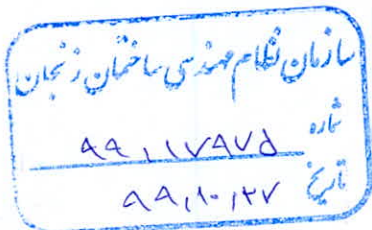 سازمان نظام مهندسی ساختمان زنجان
شماره ۹۹,۱۱۷۹۷۵
تاریخ ۹۹,۱۰,۲۷